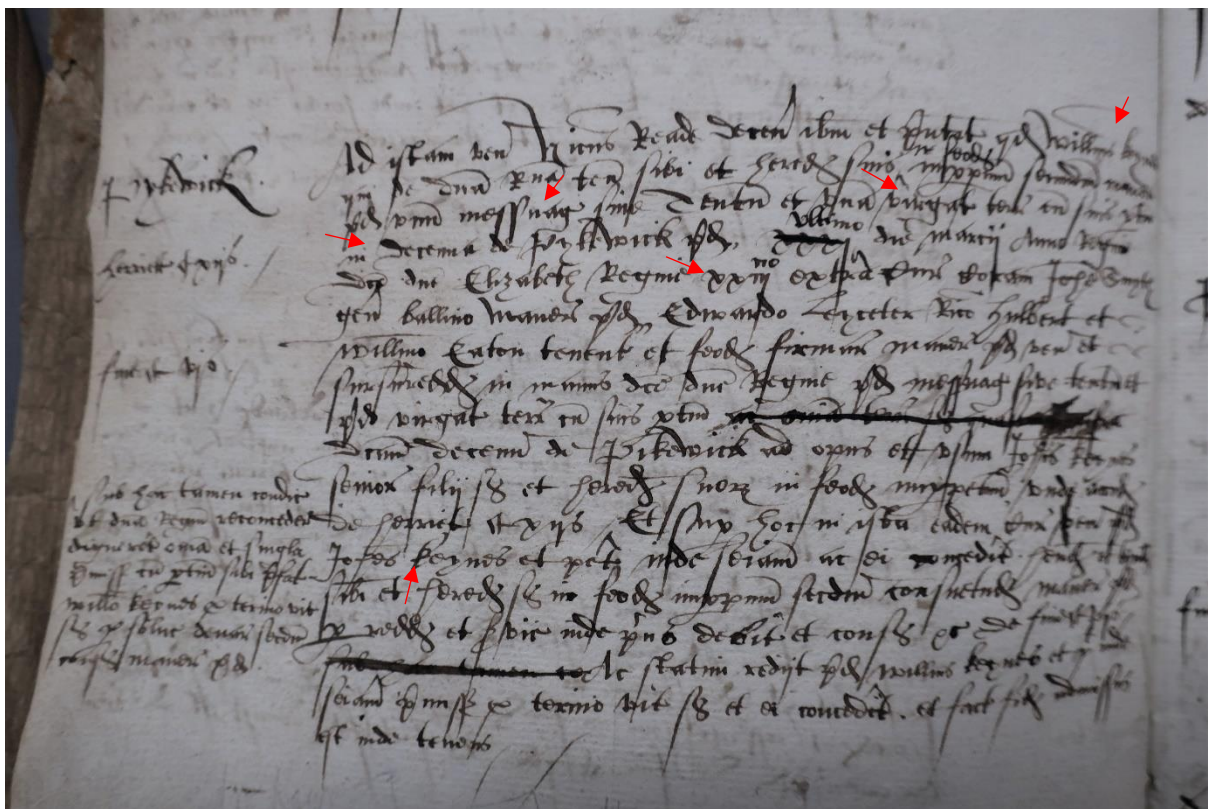 Pykewick
herriet xijs
fine vjs
Sub hac tamen condic
vt dna Regin reconceder
dignaret omia et singla
pmiss cu ptin sibi pfat
Willo keynes p termio vit
s p solut denar secdm
cons maner pd
Ad istam ven Ricus Reade decen ibm et putat qd Willms keynes
qui de dna Rna ten sibi et hered suis in feod imppm secundum
pd vnum messuag sive Tentu et vna virgat terr cu suis ptin
in decenna de Pykewick pd, vltimo die marcii Anno Regni
dce dne Elizabeth Regine xxiij no extra Cur coram Johe Smyth
gen ballivo maner pd Edwardo Leyceter Rico Hulbert et
Willmo Eaton tenent et feod firmar maner pd ven et
sursumredd in manus dce dne Regine pd messuag sive tentu et
pd virgat terr cu suis ptin
decenn de Pikewick ad opus et vsum Johis keynes
senior filij s et hered suorz in feod imppetm vnde accid
de herriet xijs Et sup hoc in ista eadem Cur ven pd
Johes keynes et pet inde seiam ac ei concedit
sibi et hered s in feod imppm secdm consuetud maner pd
p redd et svic inde prius debit et cons xc De fine
Ac statim redijt pd Willms keynes et
seiam pmiss p termio vit s et ei conceditr. et fact fid admissus
est inde tenens